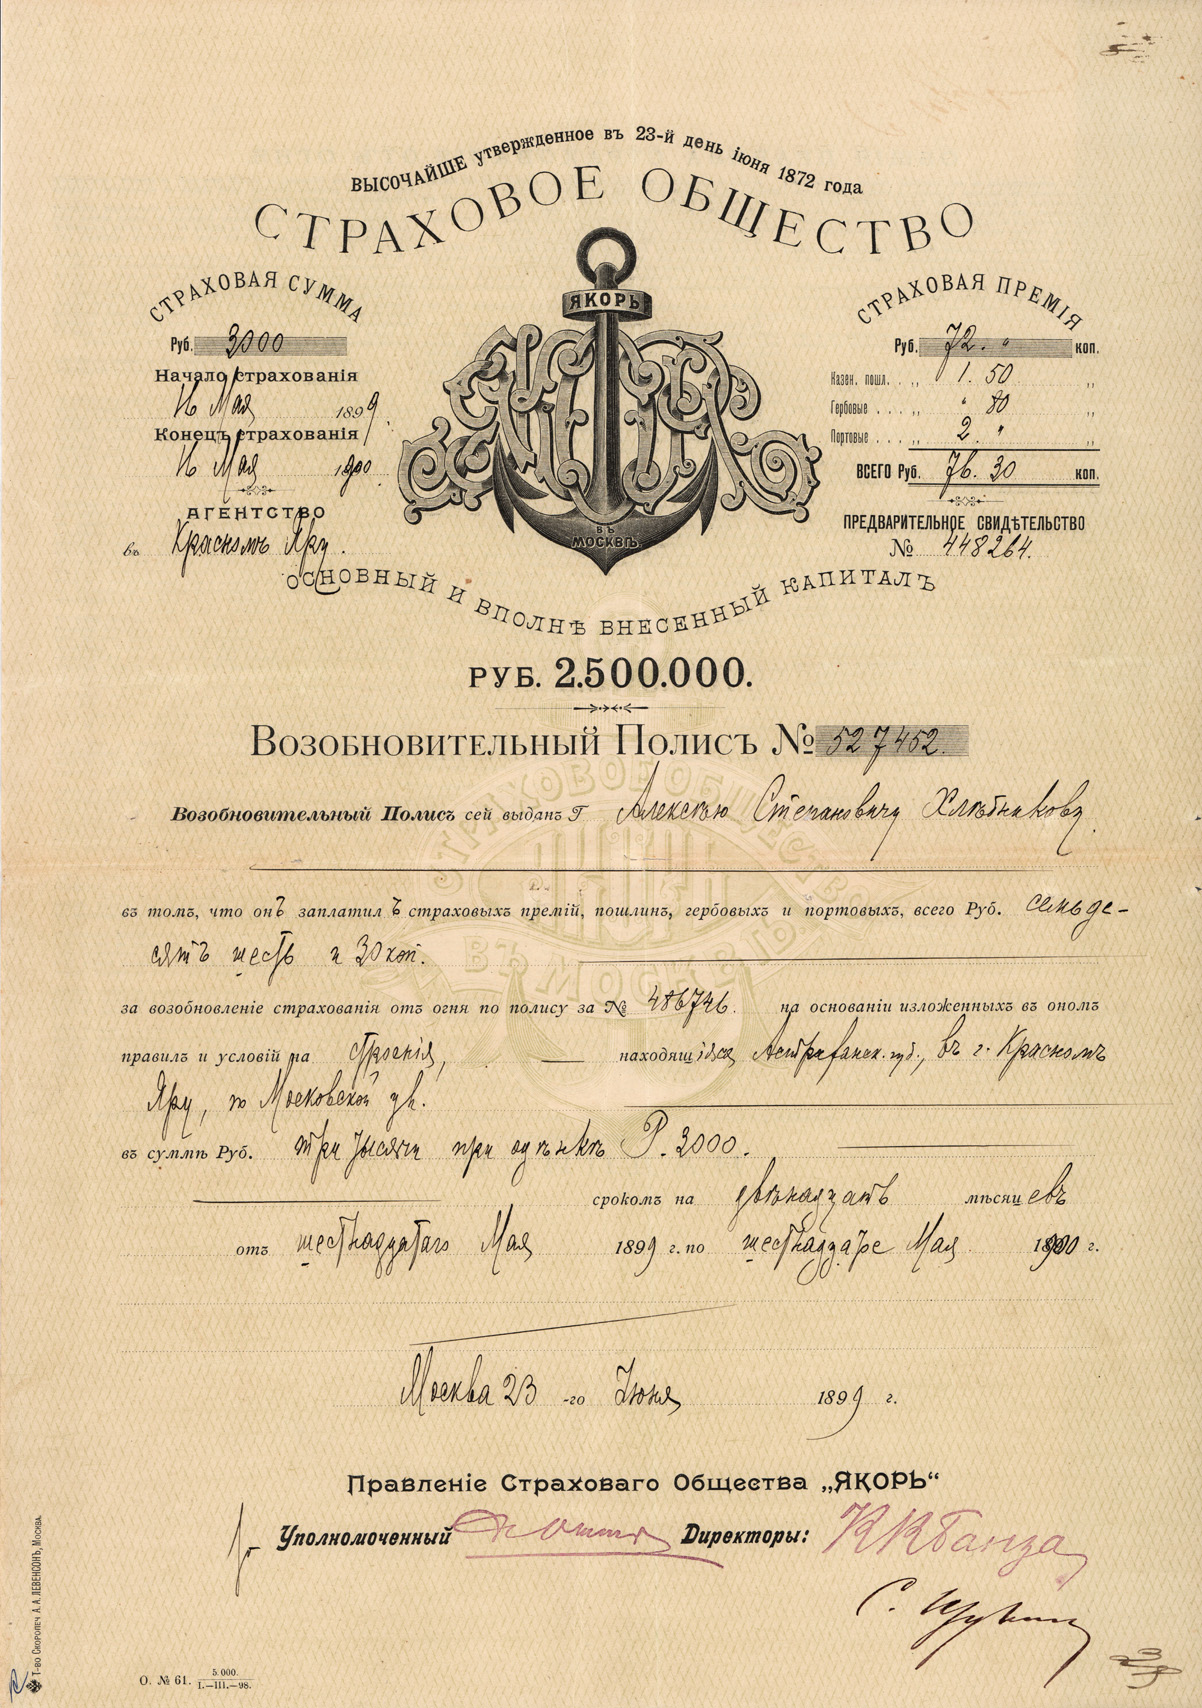 ВЫСОЧАЙШЕ утвержденное въ 23-й день іюня 1872 года
СТРАХОВОЕ ОБЩЕСТВО
ЯКОРЬ
ВЪ
МОСКВѢ
СТРАХОВАЯ СУММА
Руб. 3000
Начало страхованія
16 Мая 1899.
Конецъ страхованія
16 Мая 1900
АГЕНТСТВО
въ Красномъ Яру.
СТРАХОВАЯ ПРЕМІЯ
Руб. 72. " коп.
Казен. пошл. . „ 1. 50 „
Гербовые . . . „ " 80 „
Портовые . . . „ 2. " „
ВСЕГО Руб. 76. 30 коп.
ПРЕДВАРИТЕЛЬНОЕ СВИДѢТЕЛЬСТВО
№ 448264.
ОСНОВНЫЙ И ВПОЛНѢ ВНЕСЕННЫЙ КАПИТАЛЪ
РУБ. 2.500.000.
Возобновительный Полисъ № 527452.
СТРАХОВОЕ ОБЩЕСТВО
ЯКОРЬ
ВЪ МОСКВѢ
Возобновительный Полисъ сей выданъ Г Алексѣю Степановичу Хлѣбникову.
въ томъ, что онъ заплатилъ страховыхъ премій, пошлинъ, гербовыхъ и портовыхъ, всего Руб. семьде-
сятъ шесть и 30 коп.
за возобновленіе страхованія отъ огня по полису за № 486746. на основаніи изложенныхъ въ ономъ
правилъ и условій на строенія, находящіяся Астраханск. губ., въ г. Красномъ
Яру, по Московской ул.
въ суммѣ Руб. три тысячи при оцѣнкѣ Р. 3000.
срокомъ на двѣнадцать мѣсяцевъ
отъ шестнадцатаго Мая 1899 г. по шестнадцатое Мая 1900 г.
Москва 23 -го Іюня 1899 г.
Правленіе Страховаго Общества „ЯКОРЬ“
Уполномоченный Директоры: К К Банза
С. Щукин
Т-во Скоропеч. А. А. ЛЕВЕНСОНЪ, Москва.
О. № 61. 5.000.
I.—III.—98.